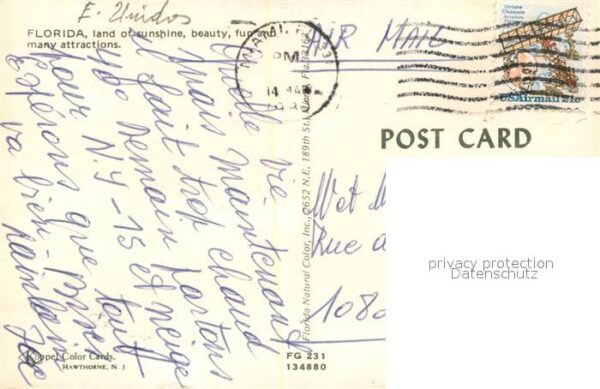 E. Unidos
FLORIDA, land of sunshine, beauty, fun and
many attractions.
AIR MAIL
MIAMI,
PM
14
Octave
Chanute
Aviation
USAirmail 21c
POST CARD
Quelle vie
Mais maintenant
fait trop chaud
Demain partons
pour N.Y -15 et neige
Espérons que tout
va bien. Bises
Koppel Color Cards.
HAWTHORNE, N. J.
FG 231
134880
Florida Natural Color, Inc., 2652 N.E. 189th St.,
Rue
1080
privacy protection
Datenschutz